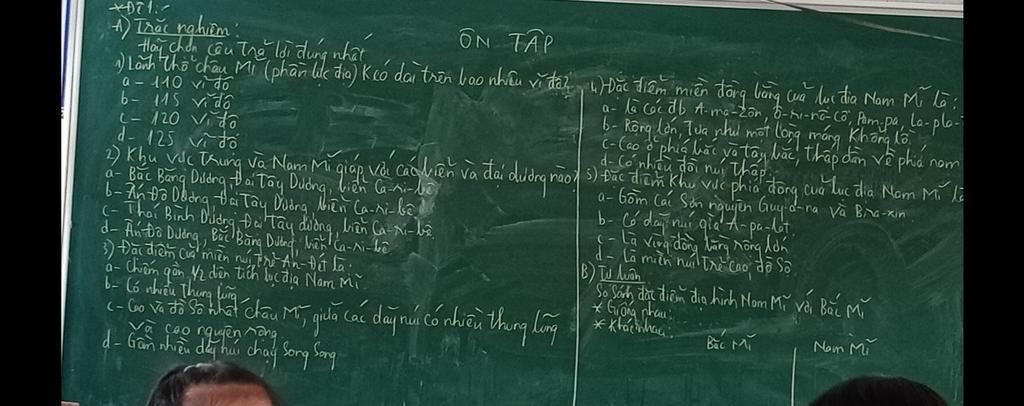 *Đề 1:
ÔN TẬP
A) Trắc nghiệm:
Hãy chọn câu trả lời đúng nhất
1) Lãnh thổ châu Mĩ (phần lục địa) kéo dài trên bao nhiêu vĩ độ?
a - 110 vĩ độ
b - 115 vĩ độ
c - 120 vĩ độ
d - 125 vĩ độ
2) Khu vực Trung và Nam Mĩ giáp với các biển và đại dương nào?
a - Bắc Băng Dương, Đại Tây Dương, biển Ca-ri-bê
b - Ấn Độ Dương, Đại Tây Dương, biển Ca-ri-bê
c - Thái Bình Dương, Đại Tây dương, biển Ca-ri-bê
d - Ấn Độ Dương, Bắc Băng Dương, biển Ca-ri-bê
3) Đặc điểm của miền núi trẻ An-Đét là:
a - Chiếm gần 1/2 diện tích lục địa Nam Mĩ
b - Có nhiều thung lũng
c - Cao và đồ sộ nhất châu Mĩ, giữa các dãy núi có nhiều thung lũng
và cao nguyên rộng
d - Gồm nhiều dãy núi chạy song song
4) Đặc điểm miền đồng bằng của lục địa Nam Mĩ là:
a - là các đb A-ma-zôn, Ô-ri-nô-cô, Pam-pa, La-pla-
b - Rộng lớn, tựa như một lòng máng khổng lồ
c - Cao ở phía bắc và tây bắc, thấp dần về phía nam
d - Có nhiều đồi núi thấp
5) Đặc điểm khu vực phía đông của lục địa Nam Mĩ là
a - Gồm các sơn nguyên Guy-a-na và Bra-xin
b - Có dãy núi già A-pa-lat
c - Là vùng đồng bằng rộng lớn
d - Là miền núi trẻ cao, đồ sộ
B) Tự luận
So sánh đặc điểm địa hình Nam Mĩ với Bắc Mĩ
* Giống nhau:
* Khác nhau:
Bắc Mĩ Nam Mĩ